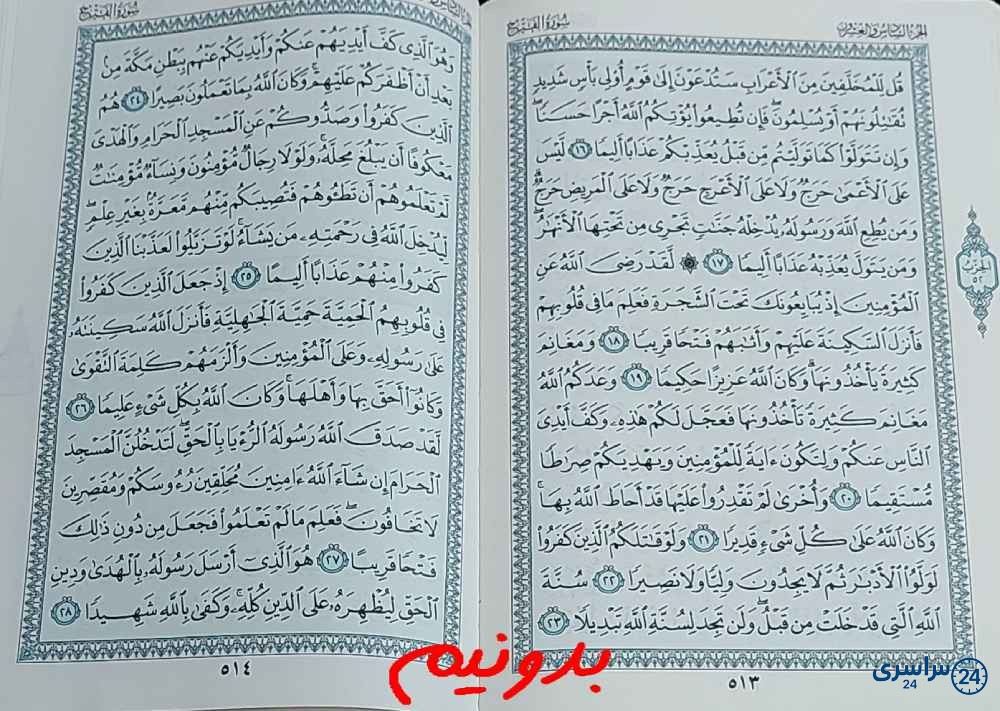 الجزء السادس والعشرون
سورة الفتح
قُل لِّلْمُخَلَّفِينَ مِنَ ٱلْأَعْرَابِ سَتُدْعَوْنَ إِلَىٰ قَوْمٍ أُو۟لِى بَأْسٍ شَدِيدٍ
تُقَـٰتِلُونَهُمْ أَوْ يُسْلِمُونَ ۖ فَإِن تُطِيعُوا۟ يُؤْتِكُمُ ٱللَّهُ أَجْرًا حَسَنًا ۖ
وَإِن تَتَوَلَّوْا۟ كَمَا تَوَلَّيْتُم مِّن قَبْلُ يُعَذِّبْكُمْ عَذَابًا أَلِيمًا ١٦ لَّيْسَ
عَلَى ٱلْأَعْمَىٰ حَرَجٌ وَلَا عَلَى ٱلْأَعْرَجِ حَرَجٌ وَلَا عَلَى ٱلْمَرِيضِ حَرَجٌ ۗ
وَمَن يُطِعِ ٱللَّهَ وَرَسُولَهُۥ يُدْخِلْهُ جَنَّـٰتٍ تَجْرِى مِن تَحْتِهَا ٱلْأَنْهَـٰرُ ۖ
وَمَن يَتَوَلَّ يُعَذِّبْهُ عَذَابًا أَلِيمًا ١٧ ۞ لَّقَدْ رَضِىَ ٱللَّهُ عَنِ
ٱلْمُؤْمِنِينَ إِذْ يُبَايِعُونَكَ تَحْتَ ٱلشَّجَرَةِ فَعَلِمَ مَا فِى قُلُوبِهِمْ
فَأَنزَلَ ٱلسَّكِينَةَ عَلَيْهِمْ وَأَثَـٰبَهُمْ فَتْحًا قَرِيبًا ١٨ وَمَغَانِمَ
كَثِيرَةً يَأْخُذُونَهَا ۗ وَكَانَ ٱللَّهُ عَزِيزًا حَكِيمًا ١٩ وَعَدَكُمُ ٱللَّهُ
مَغَانِمَ كَثِيرَةً تَأْخُذُونَهَا فَعَجَّلَ لَكُمْ هَـٰذِهِۦ وَكَفَّ أَيْدِىَ
ٱلنَّاسِ عَنكُمْ وَلِتَكُونَ ءَايَةً لِّلْمُؤْمِنِينَ وَيَهْدِيَكُمْ صِرَٰطًا
مُّسْتَقِيمًا ٢٠ وَأُخْرَىٰ لَمْ تَقْدِرُوا۟ عَلَيْهَا قَدْ أَحَاطَ ٱللَّهُ بِهَا ۚ
وَكَانَ ٱللَّهُ عَلَىٰ كُلِّ شَىْءٍ قَدِيرًا ٢١ وَلَوْ قَـٰتَلَكُمُ ٱلَّذِينَ كَفَرُوا۟
لَوَلَّوُا۟ ٱلْأَدْبَـٰرَ ثُمَّ لَا يَجِدُونَ وَلِيًّا وَلَا نَصِيرًا ٢٢ سُنَّةَ
ٱللَّهِ ٱلَّتِى قَدْ خَلَتْ مِن قَبْلُ ۖ وَلَن تَجِدَ لِسُنَّةِ ٱللَّهِ تَبْدِيلًا ٢٣
٥١٣
الحزب
٥٢
سورة الفتح
وَهُوَ ٱلَّذِى كَفَّ أَيْدِيَهُمْ عَنكُمْ وَأَيْدِيَكُمْ عَنْهُم بِبَطْنِ مَكَّةَ مِنۢ
بَعْدِ أَنْ أَظْفَرَكُمْ عَلَيْهِمْ ۚ وَكَانَ ٱللَّهُ بِمَا تَعْمَلُونَ بَصِيرًا ٢٤ هُمُ
ٱلَّذِينَ كَفَرُوا۟ وَصَدُّوكُمْ عَنِ ٱلْمَسْجِدِ ٱلْحَرَامِ وَٱلْهَدْىَ
مَعْكُوفًا أَن يَبْلُغَ مَحِلَّهُۥ ۚ وَلَوْلَا رِجَالٌ مُّؤْمِنُونَ وَنِسَآءٌ مُّؤْمِنَـٰتٌ
لَّمْ تَعْلَمُوهُمْ أَن تَطَـُٔوهُمْ فَتُصِيبَكُم مِّنْهُم مَّعَرَّةٌۢ بِغَيْرِ عِلْمٍ ۖ
لِّيُدْخِلَ ٱللَّهُ فِى رَحْمَتِهِۦ مَن يَشَآءُ ۚ لَوْ تَزَيَّلُوا۟ لَعَذَّبْنَا ٱلَّذِينَ
كَفَرُوا۟ مِنْهُمْ عَذَابًا أَلِيمًا ٢٥ إِذْ جَعَلَ ٱلَّذِينَ كَفَرُوا۟
فِى قُلُوبِهِمُ ٱلْحَمِيَّةَ حَمِيَّةَ ٱلْجَـٰهِلِيَّةِ فَأَنزَلَ ٱللَّهُ سَكِينَتَهُۥ
عَلَىٰ رَسُولِهِۦ وَعَلَى ٱلْمُؤْمِنِينَ وَأَلْزَمَهُمْ كَلِمَةَ ٱلتَّقْوَىٰ
وَكَانُوٓا۟ أَحَقَّ بِهَا وَأَهْلَهَا ۚ وَكَانَ ٱللَّهُ بِكُلِّ شَىْءٍ عَلِيمًا ٢٦
لَّقَدْ صَدَقَ ٱللَّهُ رَسُولَهُ ٱلرُّءْيَا بِٱلْحَقِّ ۖ لَتَدْخُلُنَّ ٱلْمَسْجِدَ
ٱلْحَرَامَ إِن شَآءَ ٱللَّهُ ءَامِنِينَ مُحَلِّقِينَ رُءُوسَكُمْ وَمُقَصِّرِينَ
لَا تَخَافُونَ ۖ فَعَلِمَ مَا لَمْ تَعْلَمُوا۟ فَجَعَلَ مِن دُونِ ذَٰلِكَ
فَتْحًا قَرِيبًا ٢٧ هُوَ ٱلَّذِىٓ أَرْسَلَ رَسُولَهُۥ بِٱلْهُدَىٰ وَدِينِ
ٱلْحَقِّ لِيُظْهِرَهُۥ عَلَى ٱلدِّينِ كُلِّهِۦ ۚ وَكَفَىٰ بِٱللَّهِ شَهِيدًا ٢٨
٥١٤
بدونیم
سراسری 24
24